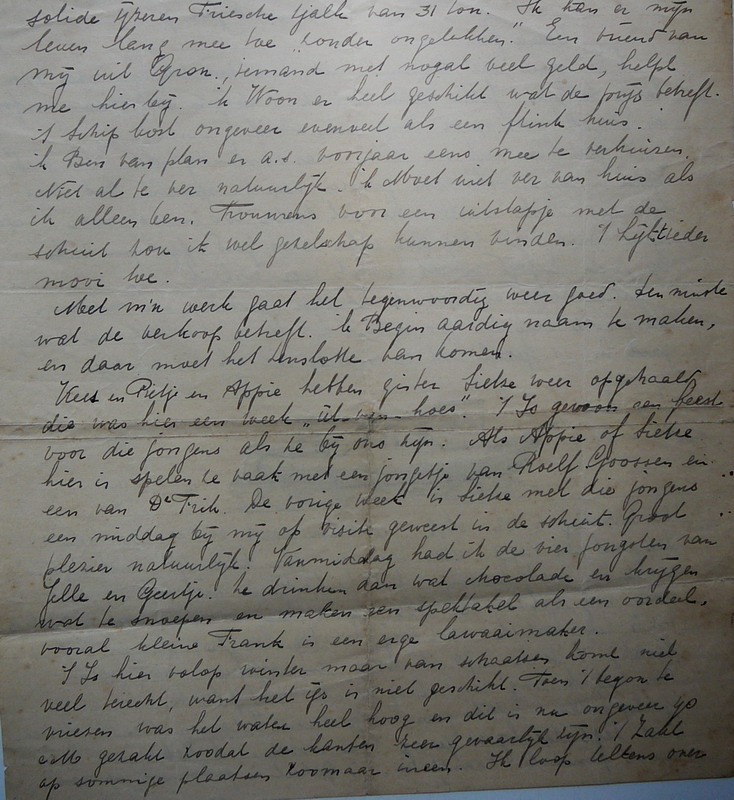 solide ijzeren Friesche tjalk van 31 ton. Ik kan er mijn
leven lang mee toe "zonder ongelukken." Een vriend van
mij uit Gron., iemand met nogal veel geld, helpt
me hierbij. ik Woon er heel geschikt wat de prijs betreft.
't Schip kost ongeveer evenveel als een flink huis.
ik Ben van plan er a.s. voorjaar eens mee te verhuizen.
Niet al te ver natuurlijk. ik Moet niet ver van huis als
ik alleen ben. Trouwens voor een uitstapje met de
schuit zou ik wel gezelschap kunnen vinden. 't Lijkt ieder
mooi toe.
Met m'n werk gaat het tegenwoordig weer goed. ten minste
wat de verkoop betreft. ik Begin aardig naam te maken,
en daar moet het tenslotte van komen.
Kees en Pietje en Appie hebben gister Sietse weer opgehaald
die was hier een week "uit van hoes". 't Is gewoon een feest
voor die jongens als ze bij ons zijn. Als Appie of Sietse
hier is spelen ze vaak met een jongetje van Roelf Goossen en
een van Dr Frik. De vorige week is Sietse met die jongens
een middag bij mij op visite geweest in de schuit. Groot
plezier natuurlijk. Vanmiddag had ik de vier jongsten van
Jelle en Geertje. Ze drinken dan wat chocolade en krijgen
wat te snoepen en maken een spektakel als een oordeel.
vooral kleine Frank is een erge lawaaimaker.
't Is hier volop winter maar van schaatsen komt niet
veel terecht, want het ijs is niet geschikt. Toen 't begon te
vriezen was het water heel hoog en dit is nu ongeveer 40
cM gezakt zoodat de kanten zeer gevaarlijk zijn. 't Zakt
op sommige plaatsen zoomaar ineen. Ik loop telkens over